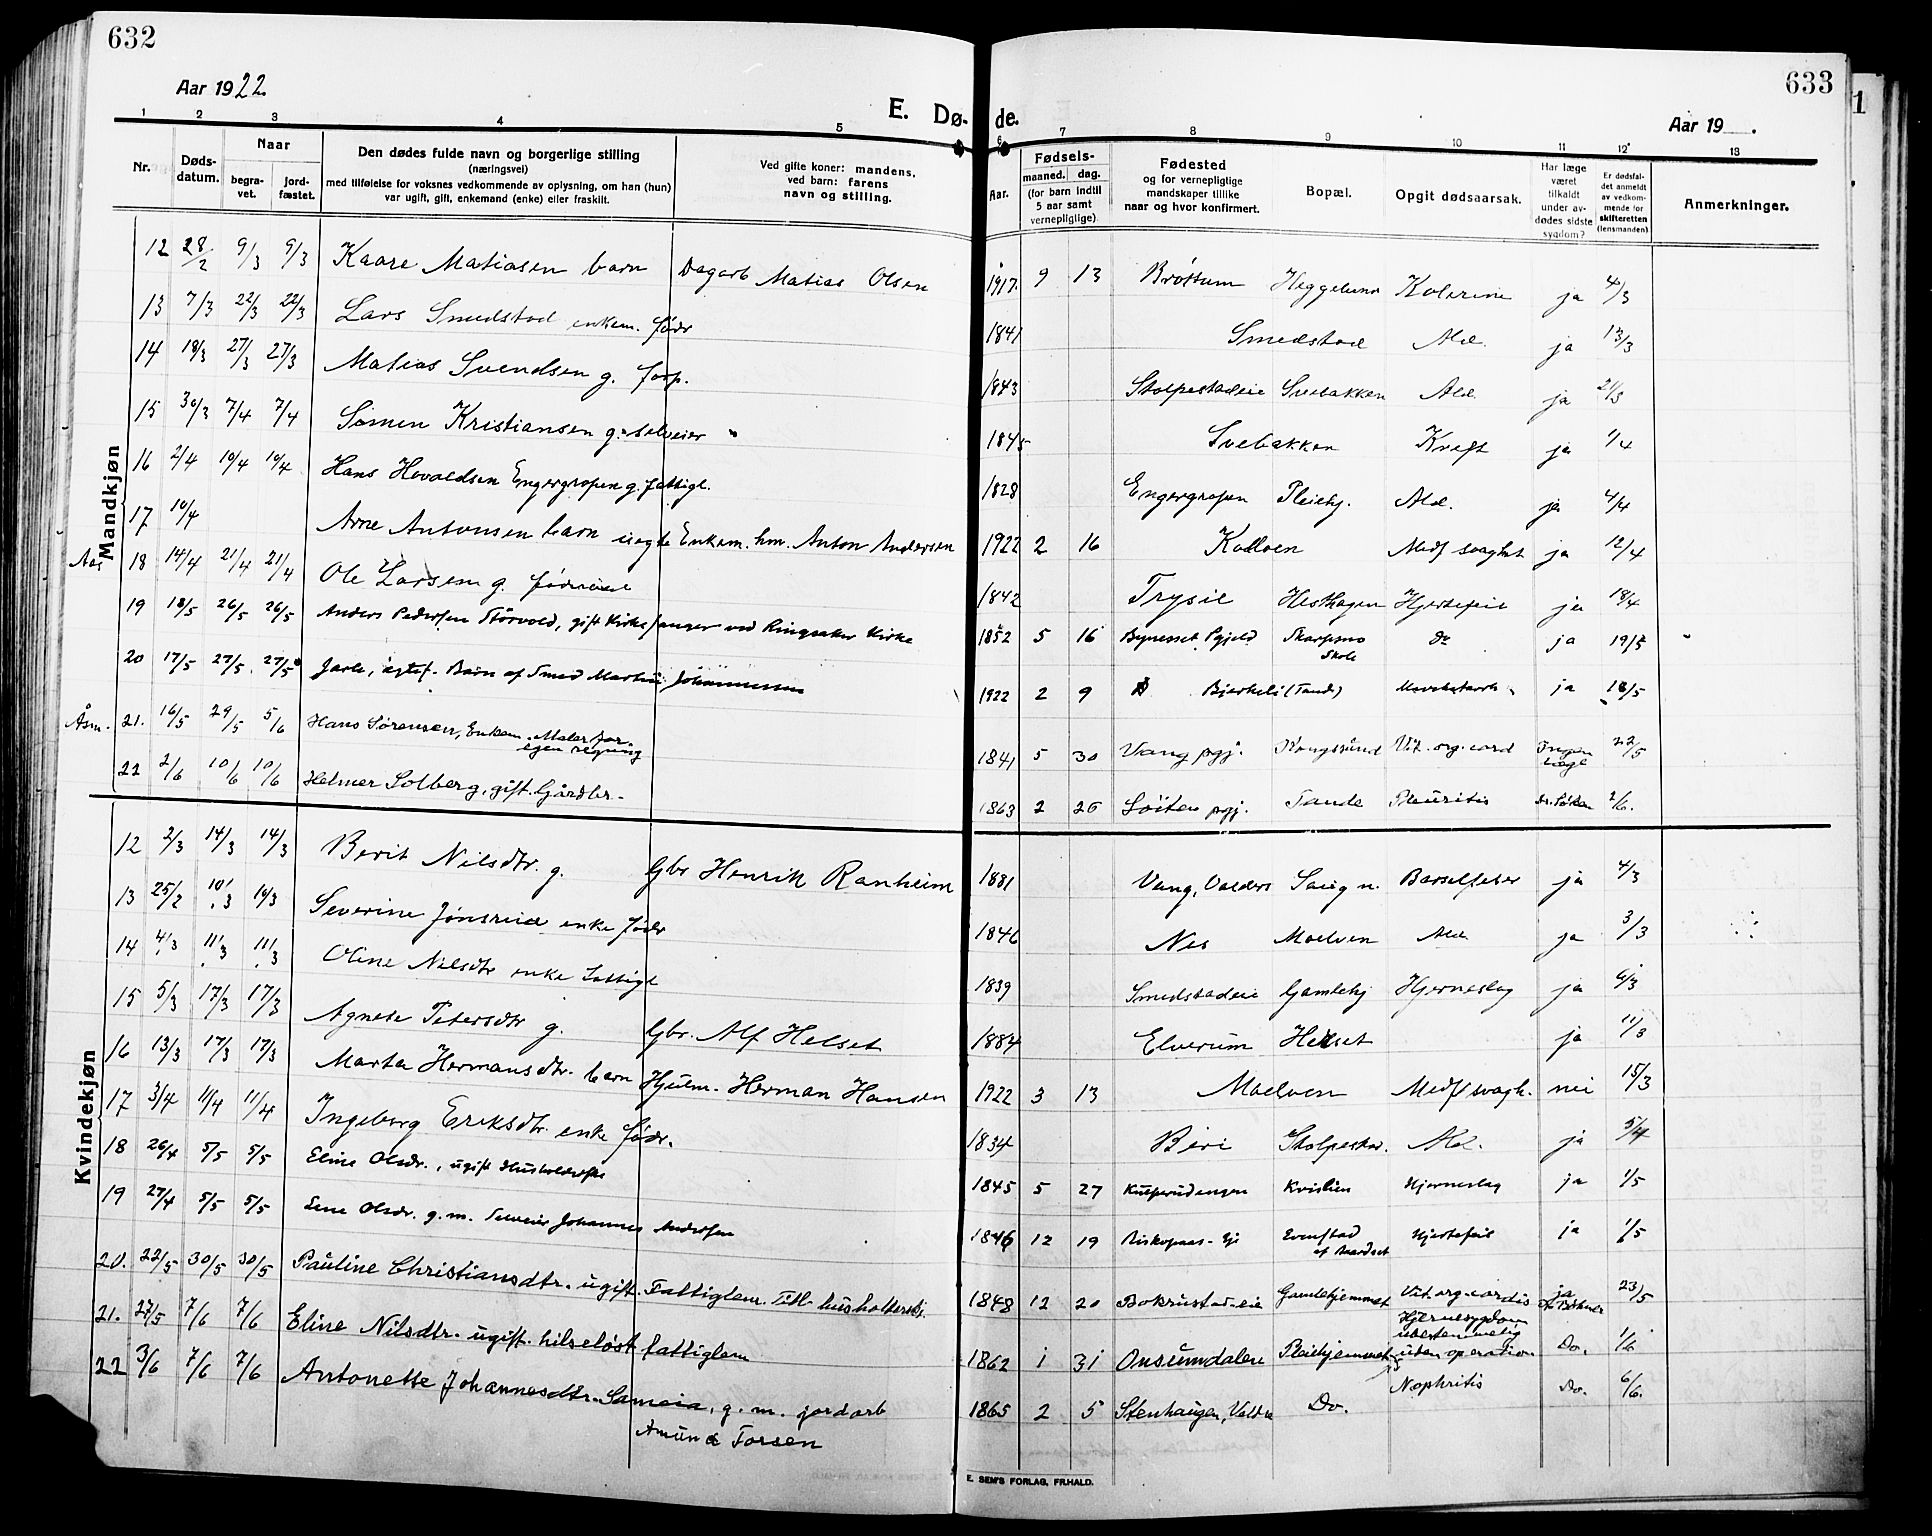 632
633
1
Aar 1922
E. Dø- de.
Aar 19 .
1 2 3 4 5 6 7 8 9 10 11 12 13
Nr.
Døds-
datum.
Naar
begra-
vet.
jord-
fæstet.
Den dødes fulde navn og borgerlige stilling
(næringsvei)
med tilføielse for voksnes vedkommende av oplysning, om han (hun)
var ugift, gift, enkemand (enke) eller fraskilt.
Ved gifte koner: mandens,
ved barn: farens
navn og stilling.
Aar.
Fødsels-
maaned. dag.
(for barn indtil
5 aar samt
vernepligtige)
Fødested
og for vernepligtige
mandskaper tillike
naar og hvor konfirmert.
Bopæl.
Opgit dødsaarsak.
Har læge
været
tilkaldt
under av-
dødes sidste
sygdom?
Er dødsfal-
det anmeldt
av vedkom-
mende for
skifteretten
(lensmanden)
Anmerkninger.
Mandkjøn
12 28/2 9/3 9/3 Kaare Matiasen barn Dagarb Matias Olsen 1917 9 13 Brøttum Heggelund Kolerine ja 4/3
13 7/3 22/3 22/3 Lars Smedstad enkem. fødr 1841 Smedstad Ald. ja 13/3
14 18/3 27/3 27/3 Matias Svendsen g. forp. 1843 Stolpestadeie Svebakken Ald. ja 21/3
15 30/3 7/4 7/4 Simen Kristiansen g. selveier 1845 Svebakken Kreft ja 1/4
16 2/4 10/4 10/4 Hans Hovaldsen Engergropen g. fattigl. 1828 Engergropen Pleiehj. Ald. ja 4/4
17 10/4 Arne Antonsen barn uegte Enkem. hm. Anton Andersen 1922 2 16 Kolloen Medf svaghet ja 12/4
18 14/4 21/4 21/4 Ole Larsen g. 1842 Trysil Hesthagen Hjertefeil ja 18/4
19 18/5 26/5 26/5 Anders Pedersen Størvold, gift Kirkesanger ved Ringsaker Kirke 1852 5 16 Bynesset Pgjeld Skarpsno do ja 19/5
Skole
20 17/5 27/5 27/5 Jarle, ægtef. Barn af Smed Martin Johannessen 1922 2 9 Bjerkeli (Tande) ja 18/5
Åsm. 21. 16/5 29/5 5/6 Hans Sørensen, Enkem. Maler for 1841 5 30 Vang pgj. Kongssund Vit. org. cord Ingen 22/5
egen regning læge
22 2/6 10/6 10/6 Helmer Solberg, gift. Gårdbr. 1863 2 26 Löiten pgj. Tande Pleuritis 2/6.
Kvindekjøn
12 2/3 14/3 14/3 Berit Nilsdtr. g. Gbr Henrik Ranheim 1881 Vang, Valders Saug n. Barselfeber ja 4/3
13 25/2 10/3 10/3 Severine Jønsreie enke fødr 1846 Nes Moelven Ald. ja 3/3
14 4/3 11/3 11/3 Oline Nilsdtr enke Fattigl 1839 Smedstadeie Gamlehj Hjerneslag ja 6/3
15 5/3 17/3 17/3 Agnese Petersdtr g. Gbr. Alf Helset 1884 Elverum Helset ja 11/3
16 13/3 17/3 17/3 Marta Hermansdtr. barn Hjulm. Herman Hansen 1922 3 13 Moelven Medf svagh. nei 15/3
17 3/4 11/4 11/4 Ingeborg Eriksdtr. enke fødr. 1834 Biri Stolpestad. Ald. ja 5/4
18 26/4 5/5 5/5 Eline Olsdr., ugift 1845 5 27 Kvislien Hjerneslag ja 1/5
19 27/4 5/5 5/5 Lene Olsdr. g. m. Selveier Johannes Andersen 1846 12 19 Evenstad Hjertefeil ja 1/5
20. 22/5 30/5 30/5 Pauline Christiansdtr. ugift. Fattiglem. Tidl. husholderske. 1848 12 20 Bokrustadeie Gamlehjemmet Vit. org. cordis ja 23/5
21. 27/5 7/6 7/6 Eline Nilsdtr. ugift. helseløst fattiglem 1862 1 31 Onsumdalen Pleiehjemmet Hjernesygdom
ubestemmelig
uden operation Do. 1/6
22 3/6 7/6 7/6 Antonette Johannesdtr. Sameie, g. m. jordarb 1865 2 5 Stenhaugen, Valdre Do. Nephritis Do. 6/6.
Amund Torsen
E. SEM'S FORLAG, FR.HALD.